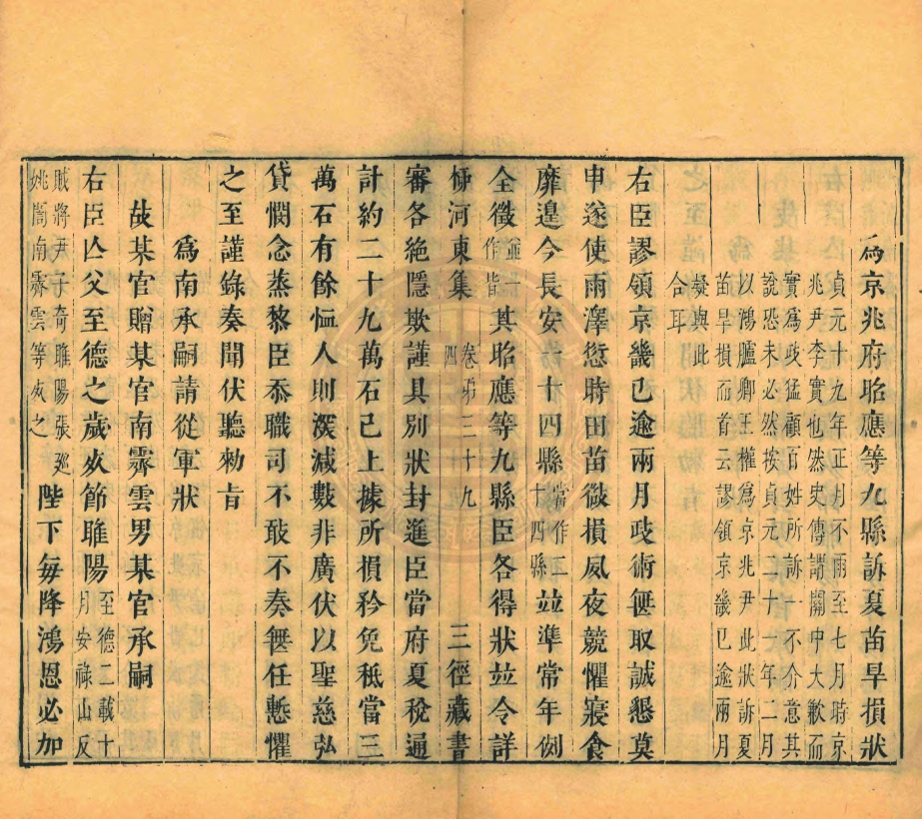 為京兆府昭應等九縣訴夏苗旱損狀
貞元十九年正月不雨至七月時京
兆尹李實也然史傳謂關中大歉而
實為政猛顧百姓所訴一不介意其
說恐未必然按貞元二十一年二月
以鴻臚卿王權為京兆尹此狀訴夏
苗旱損而首云謬領京畿已逾兩月
疑與此
合耳
右臣謬領京畿已逾兩月政術無取誠懇莫
申遂使雨澤愆時田苗微損夙夜兢懼寢食
靡遑今長安一十四縣當作二十四縣並準常年例
全徵並一作皆其昭應等九縣臣各得狀並令詳
河東集 卷第三十九 四 三徑藏書
審各絕隱欺謹具別狀封進臣當府夏稅通
計約二十九萬石已上據所損矜免秪當三
萬石有餘恤人則深減數非廣伏以聖慈弘
貸憫念蒸黎臣忝職司不敢不奏無任慙懼
之至謹錄奏聞伏聽勅旨
為南承嗣請從軍狀
故某官贈某官南霽雲男某官承嗣
右臣亡父至德之歲死節睢陽至德二載十月安祿山反
賊將尹子奇睢陽張巡姚誾南霽雲等死之陛下每降鴻恩必加